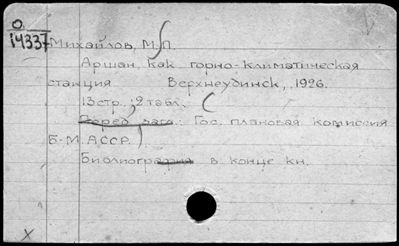 О.
14337
Михайлов, М. П.
Аршан, как горно-климатическая
станция. Верхнеудинск, 1926.
13 стр.; 2 табл. (
Перед загл.: Гос. плановая комиссия
Б-М. АССР.)
Библиография в конце кн.
X